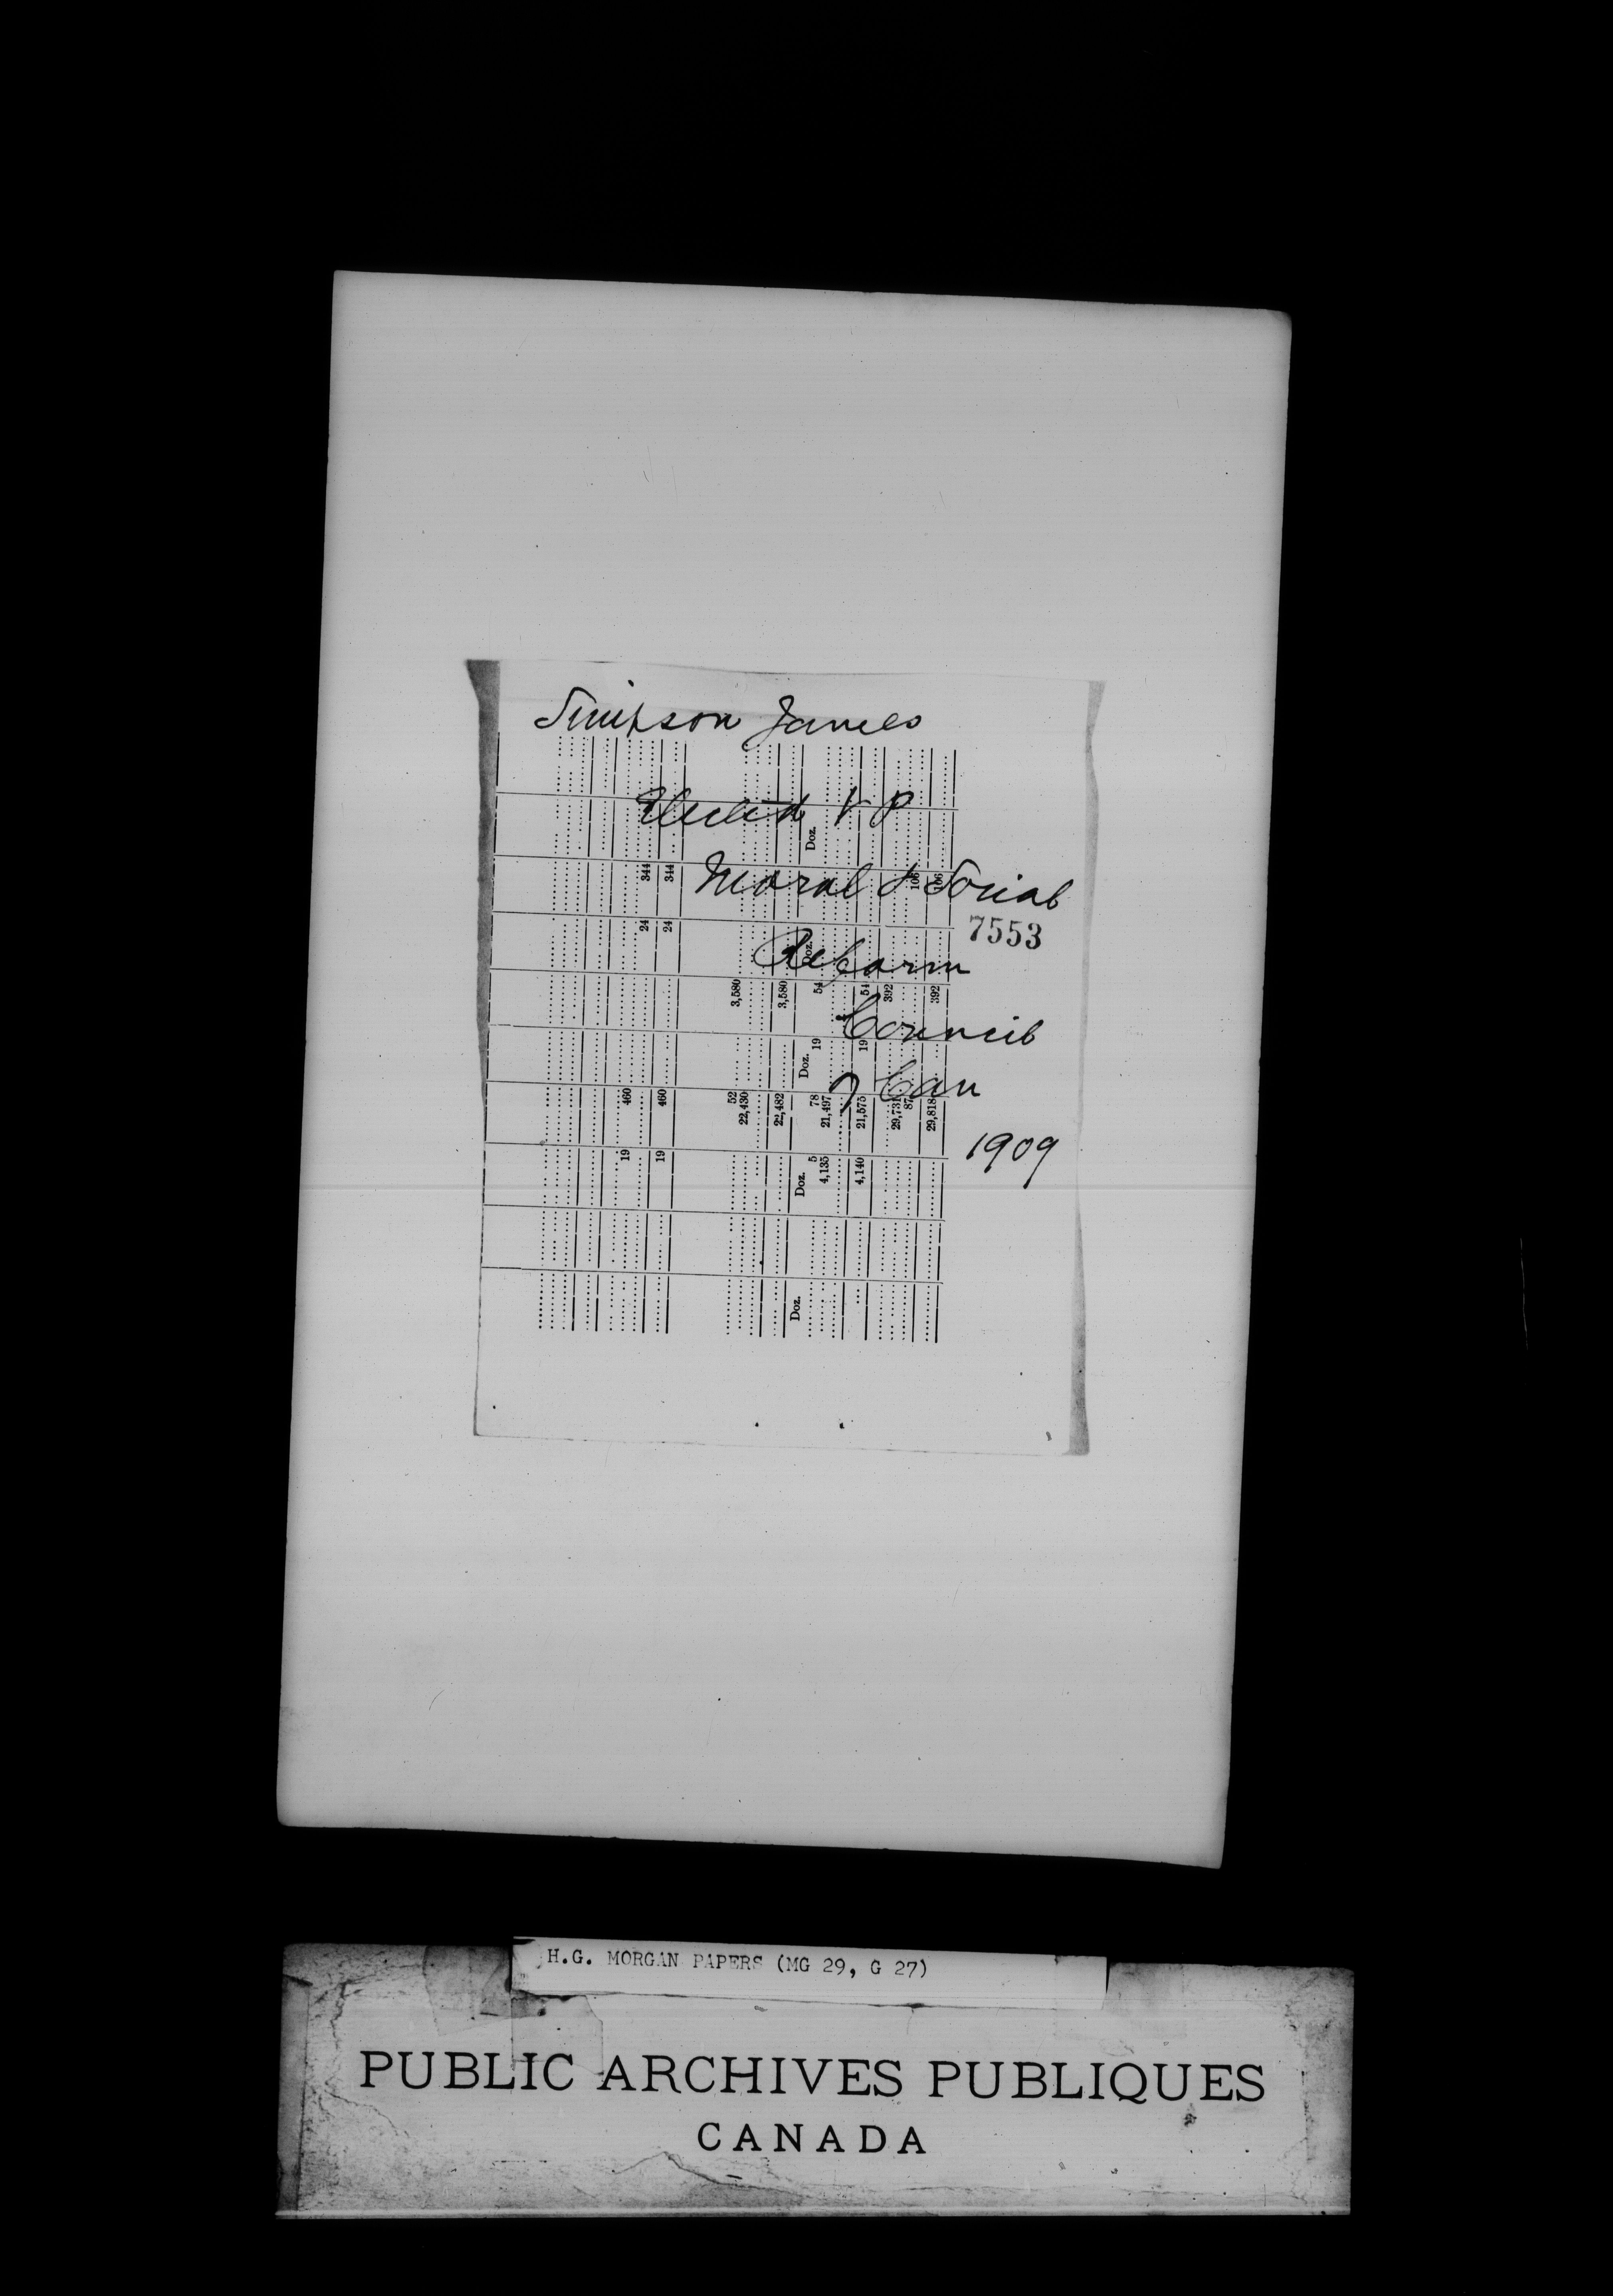 Simpson James
Elected V P
Moral & Social
7553
Reform
Council
of Can
1909
344 344 106 106
24 24
3,580 3,580 54 54 392 392
19 19
460 460 52 22,430 22,482 78 21,497 21,575 29,731 87 29,818
19 19 5 4,135 4,140
Doz.
Doz.
Doz.
Doz.
Doz.
H.G. MORGAN PAPERS (MG 29, G 27)
PUBLIC ARCHIVES PUBLIQUES
CANADA